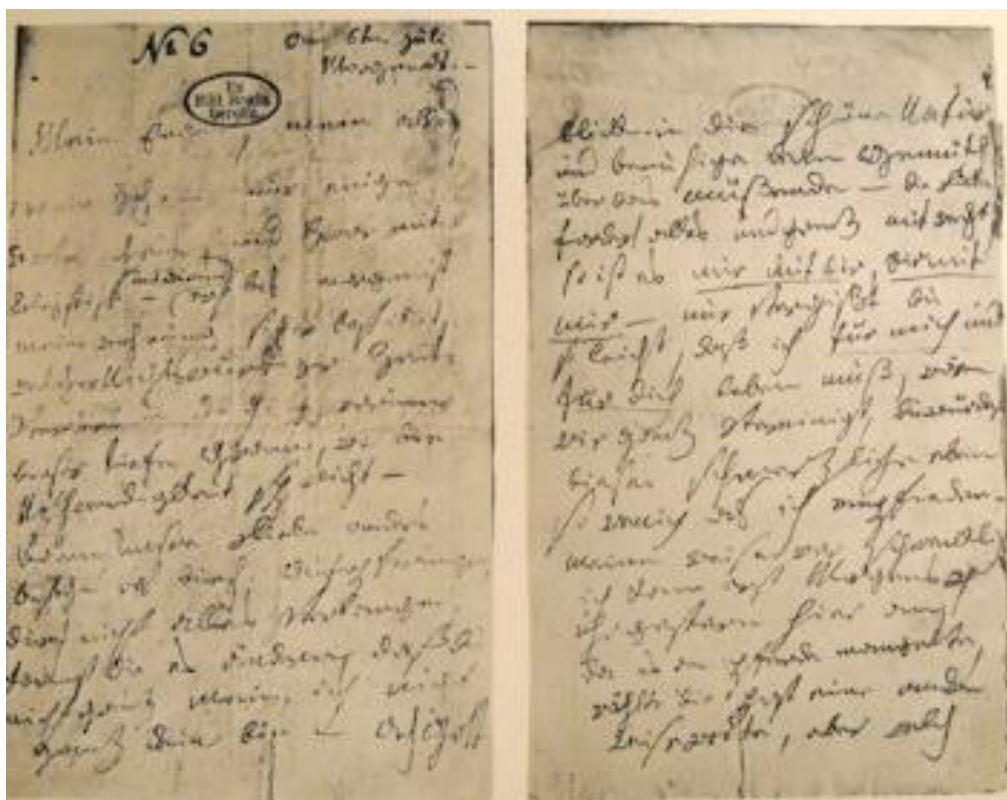 No 6 am 6ten Juli
Morgends. –
Mein Engel, mein alles
mein Ich. – nur einige
Worte heute, und zwar mit
Bleystift – (mit deinem) erst bis morgen ist
meine Wohnung sicher bestimmt,
welcher Nichtswürdiger Zeit-
verderb in d. g. – warum
dieser tiefe Gram, wo die
Nothwendigkeit spricht –
Kann unsre Liebe anders
bestehn als durch Aufopferungen,
durch nicht alles verlangen,
kannst du es ändern, daß du
nicht ganz mein, ich nicht
ganz dein bin – Ach Gott
blick in die schöne Natur
und beruhige dein Gemüth
über das müßende – die Liebe
fordert alles und ganz mit recht,
so ist es mir mit dir, dir mit
mir – nur vergißt du
so leicht, daß ich für mich und
für dich leben muß, wären
wir ganz vereinigt, du würdest
dieses schmerzliche eben
so wenig als ich empfinden –
meine Reise war schrecklich
ich kam erst Morgens 4
uhr gestern hier an,
da es an Pferde mangelte,
wählte die Post eine andre
Reiseroute, aber welch